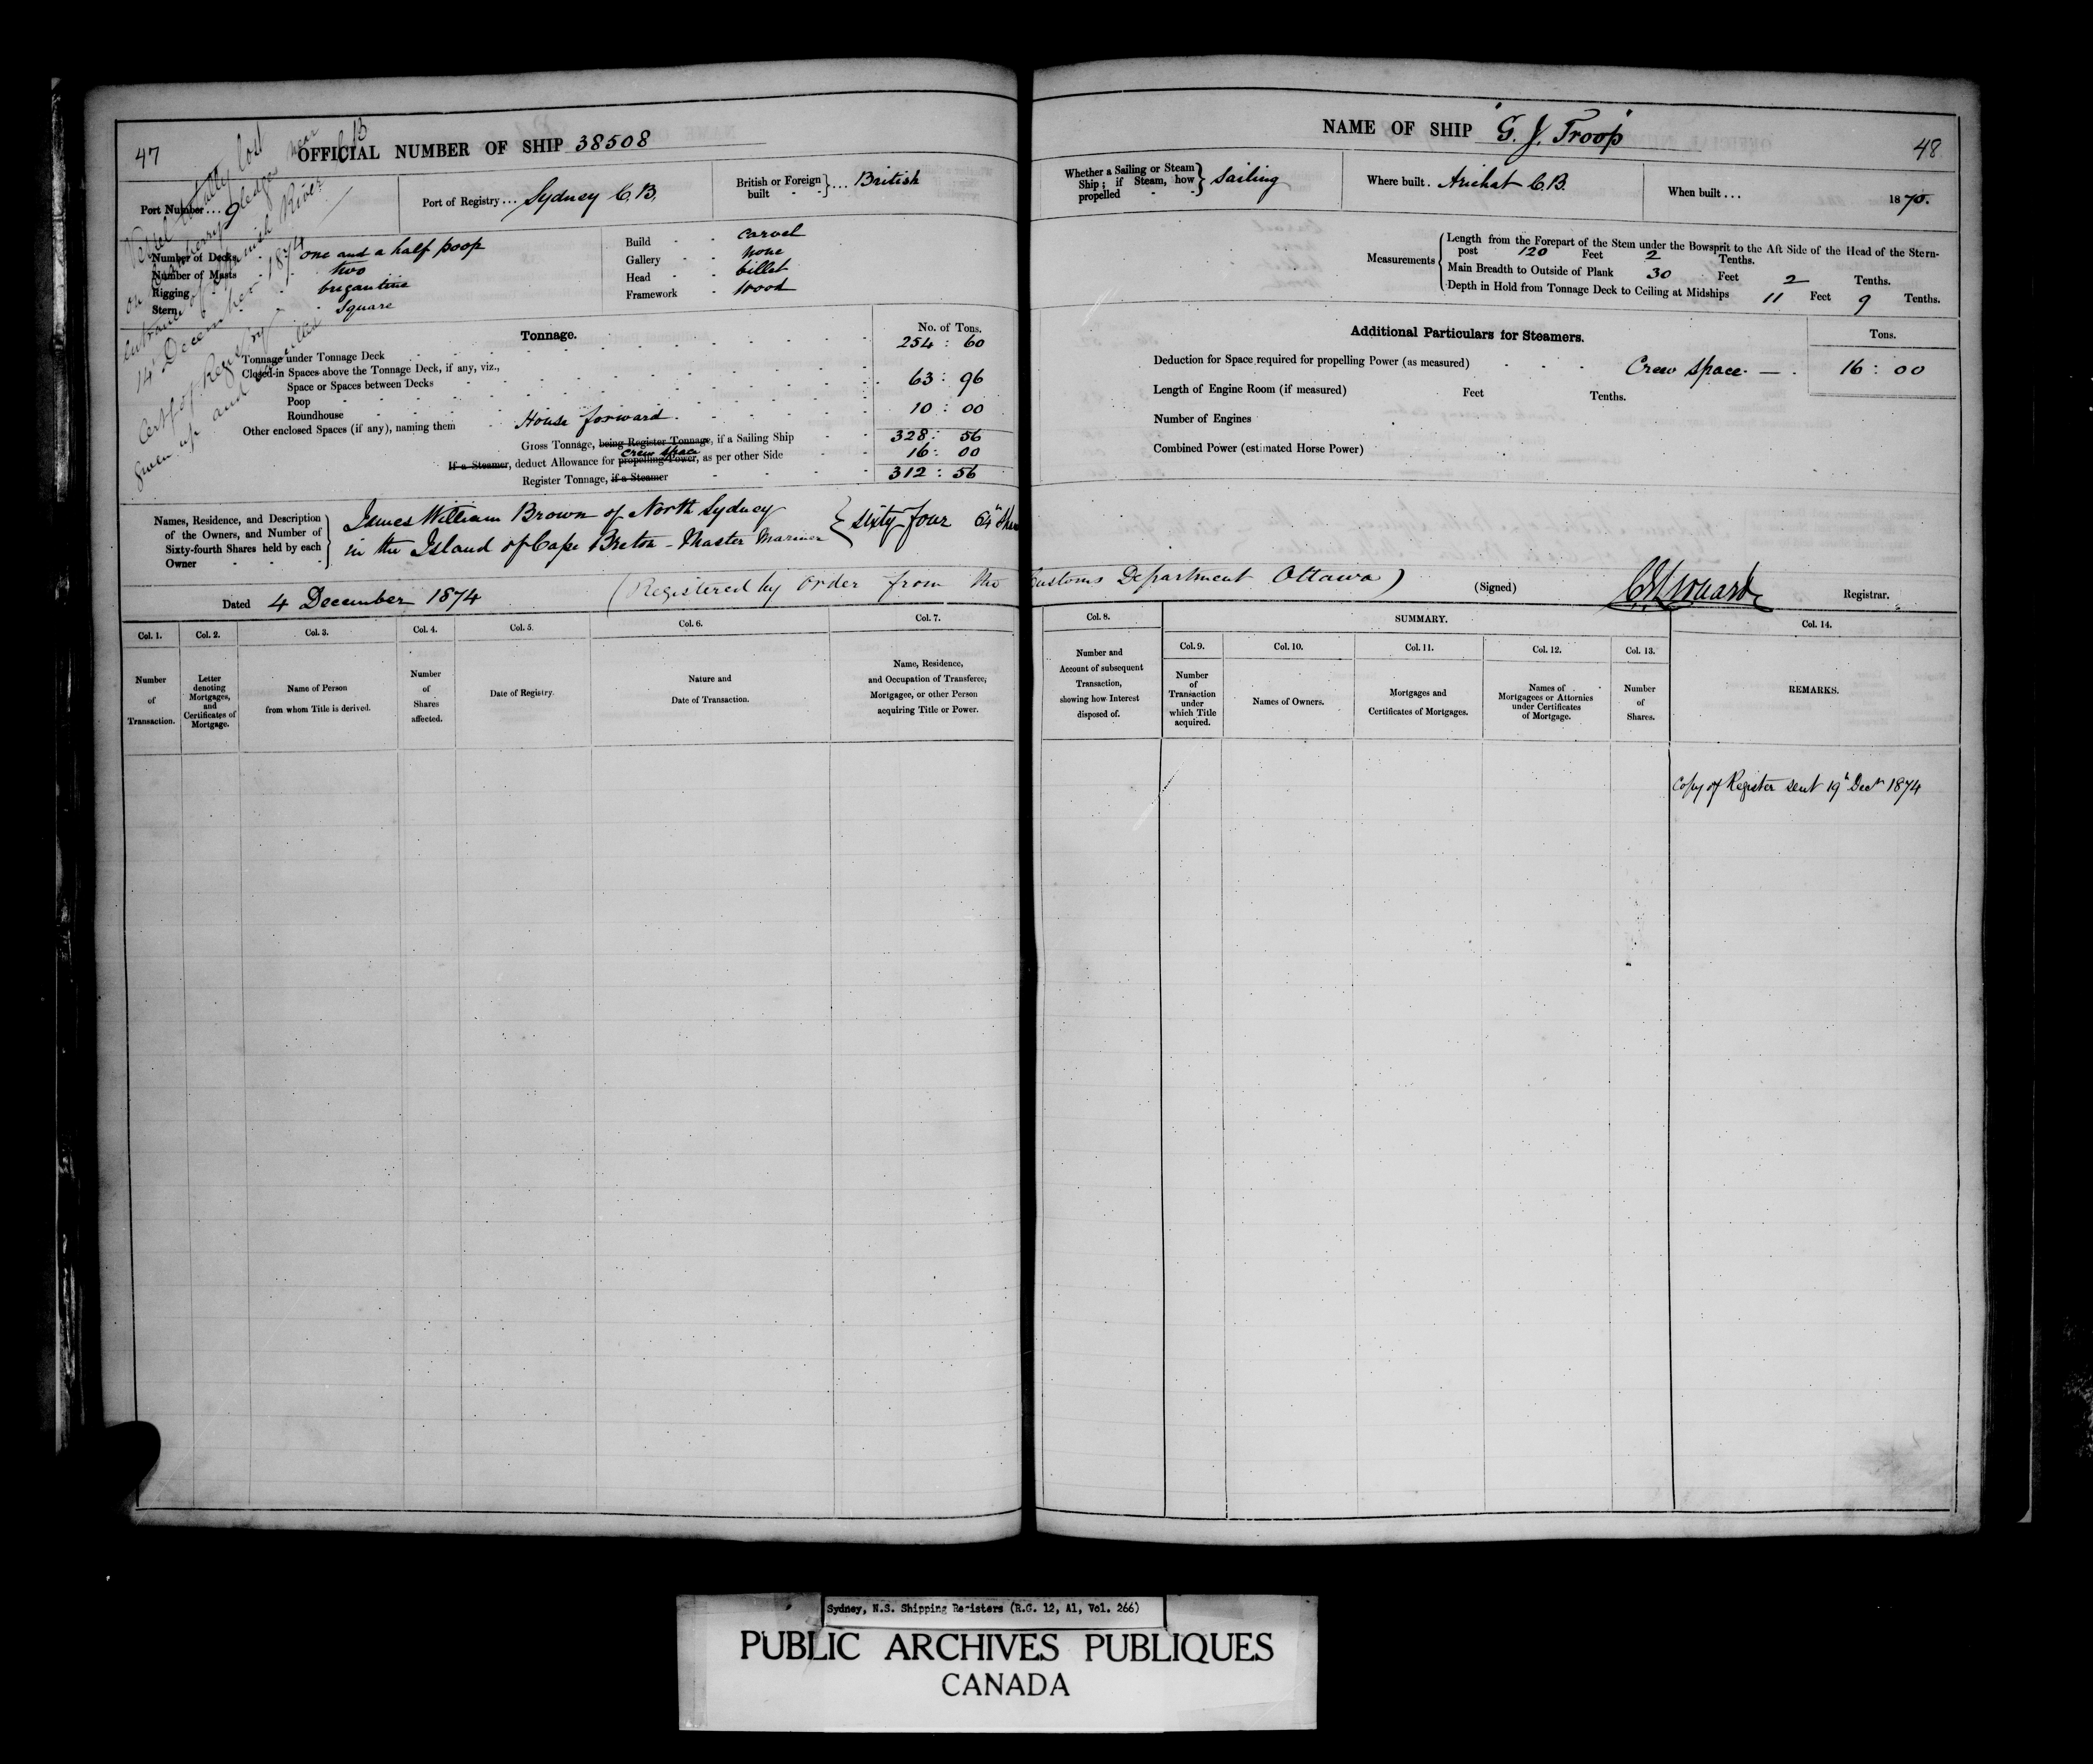 47
OFFICIAL NUMBER OF SHIP 38508
Vessel totally lost
on ledges near
entrance of River C B
14 December 1874
Cert. of Registry
given up and
Port Number ... 9
Port of Registry ... Sydney C.B.
British or Foreign built } ... British
Number of Decks one and a half poop
Number of Masts two
Rigging brigantine
Stern square
Build carvel
Gallery none
Head billet
Framework Wood
Tonnage.
No. of Tons.
Tonnage under Tonnage Deck 254 : 60
Closed-in Spaces above the Tonnage Deck, if any, viz.,
Space or Spaces between Decks 63 : 96
Poop
Roundhouse 10 : 00
Other enclosed Spaces (if any), naming them House forward.
Gross Tonnage, being Register Tonnage, if a Sailing Ship 328 : 56
crew space
If a Steamer, deduct Allowance for propelling Power, as per other Side 16 : 00
Register Tonnage, if a Steamer 312 : 56
Names, Residence, and Description
of the Owners, and Number of
Sixty-fourth Shares held by each
Owner
James William Brown of North Sydney
in the Island of Cape Breton - Master Mariner
} sixty four 64th
Dated 4 December 1874 (Registered by order from the Customs Department Ottawa)
Col. 1. Col. 2. Col. 3. Col. 4. Col. 5. Col. 6. Col. 7.
Number of Transaction.
Letter denoting Mortgages, and Certificates of Mortgage.
Name of Person from whom Title is derived.
Number of Shares affected.
Date of Registry.
Nature and Date of Transaction.
Name, Residence, and Occupation of Transferee, Mortgagee, or other Person acquiring Title or Power.
NAME OF SHIP "G. J. Troop"
48
Whether a Sailing or Steam Ship; if Steam, how propelled } Sailing
Where built . Arichat C.B.
When built ... 1870.
Measurements
Length from the Forepart of the Stem under the Bowsprit to the Aft Side of the Head of the Stern-
post 120 Feet 2 Tenths.
Main Breadth to Outside of Plank 30 Feet 2 Tenths.
Depth in Hold from Tonnage Deck to Ceiling at Midships 11 Feet 9 Tenths.
Additional Particulars for Steamers.
Tons.
Deduction for Space required for propelling Power (as measured) Crew space. — . 16 : 00
Length of Engine Room (if measured) Feet Tenths.
Number of Engines
Combined Power (estimated Horse Power)
(Signed) Registrar.
Col. 8. SUMMARY. Col. 14.
Col. 9. Col. 10. Col. 11. Col. 12. Col. 13.
Number and Account of subsequent Transaction, showing how Interest disposed of.
Number of Transaction under which Title acquired.
Names of Owners.
Mortgages and Certificates of Mortgages.
Names of Mortgagees or Attornies under Certificates of Mortgage.
Number of Shares.
REMARKS.
Copy of Register sent 19th Decr 1874
Sydney, N.S. Shipping Registers (R.G. 12, A1, Vol. 266)
PUBLIC ARCHIVES PUBLIQUES
CANADA